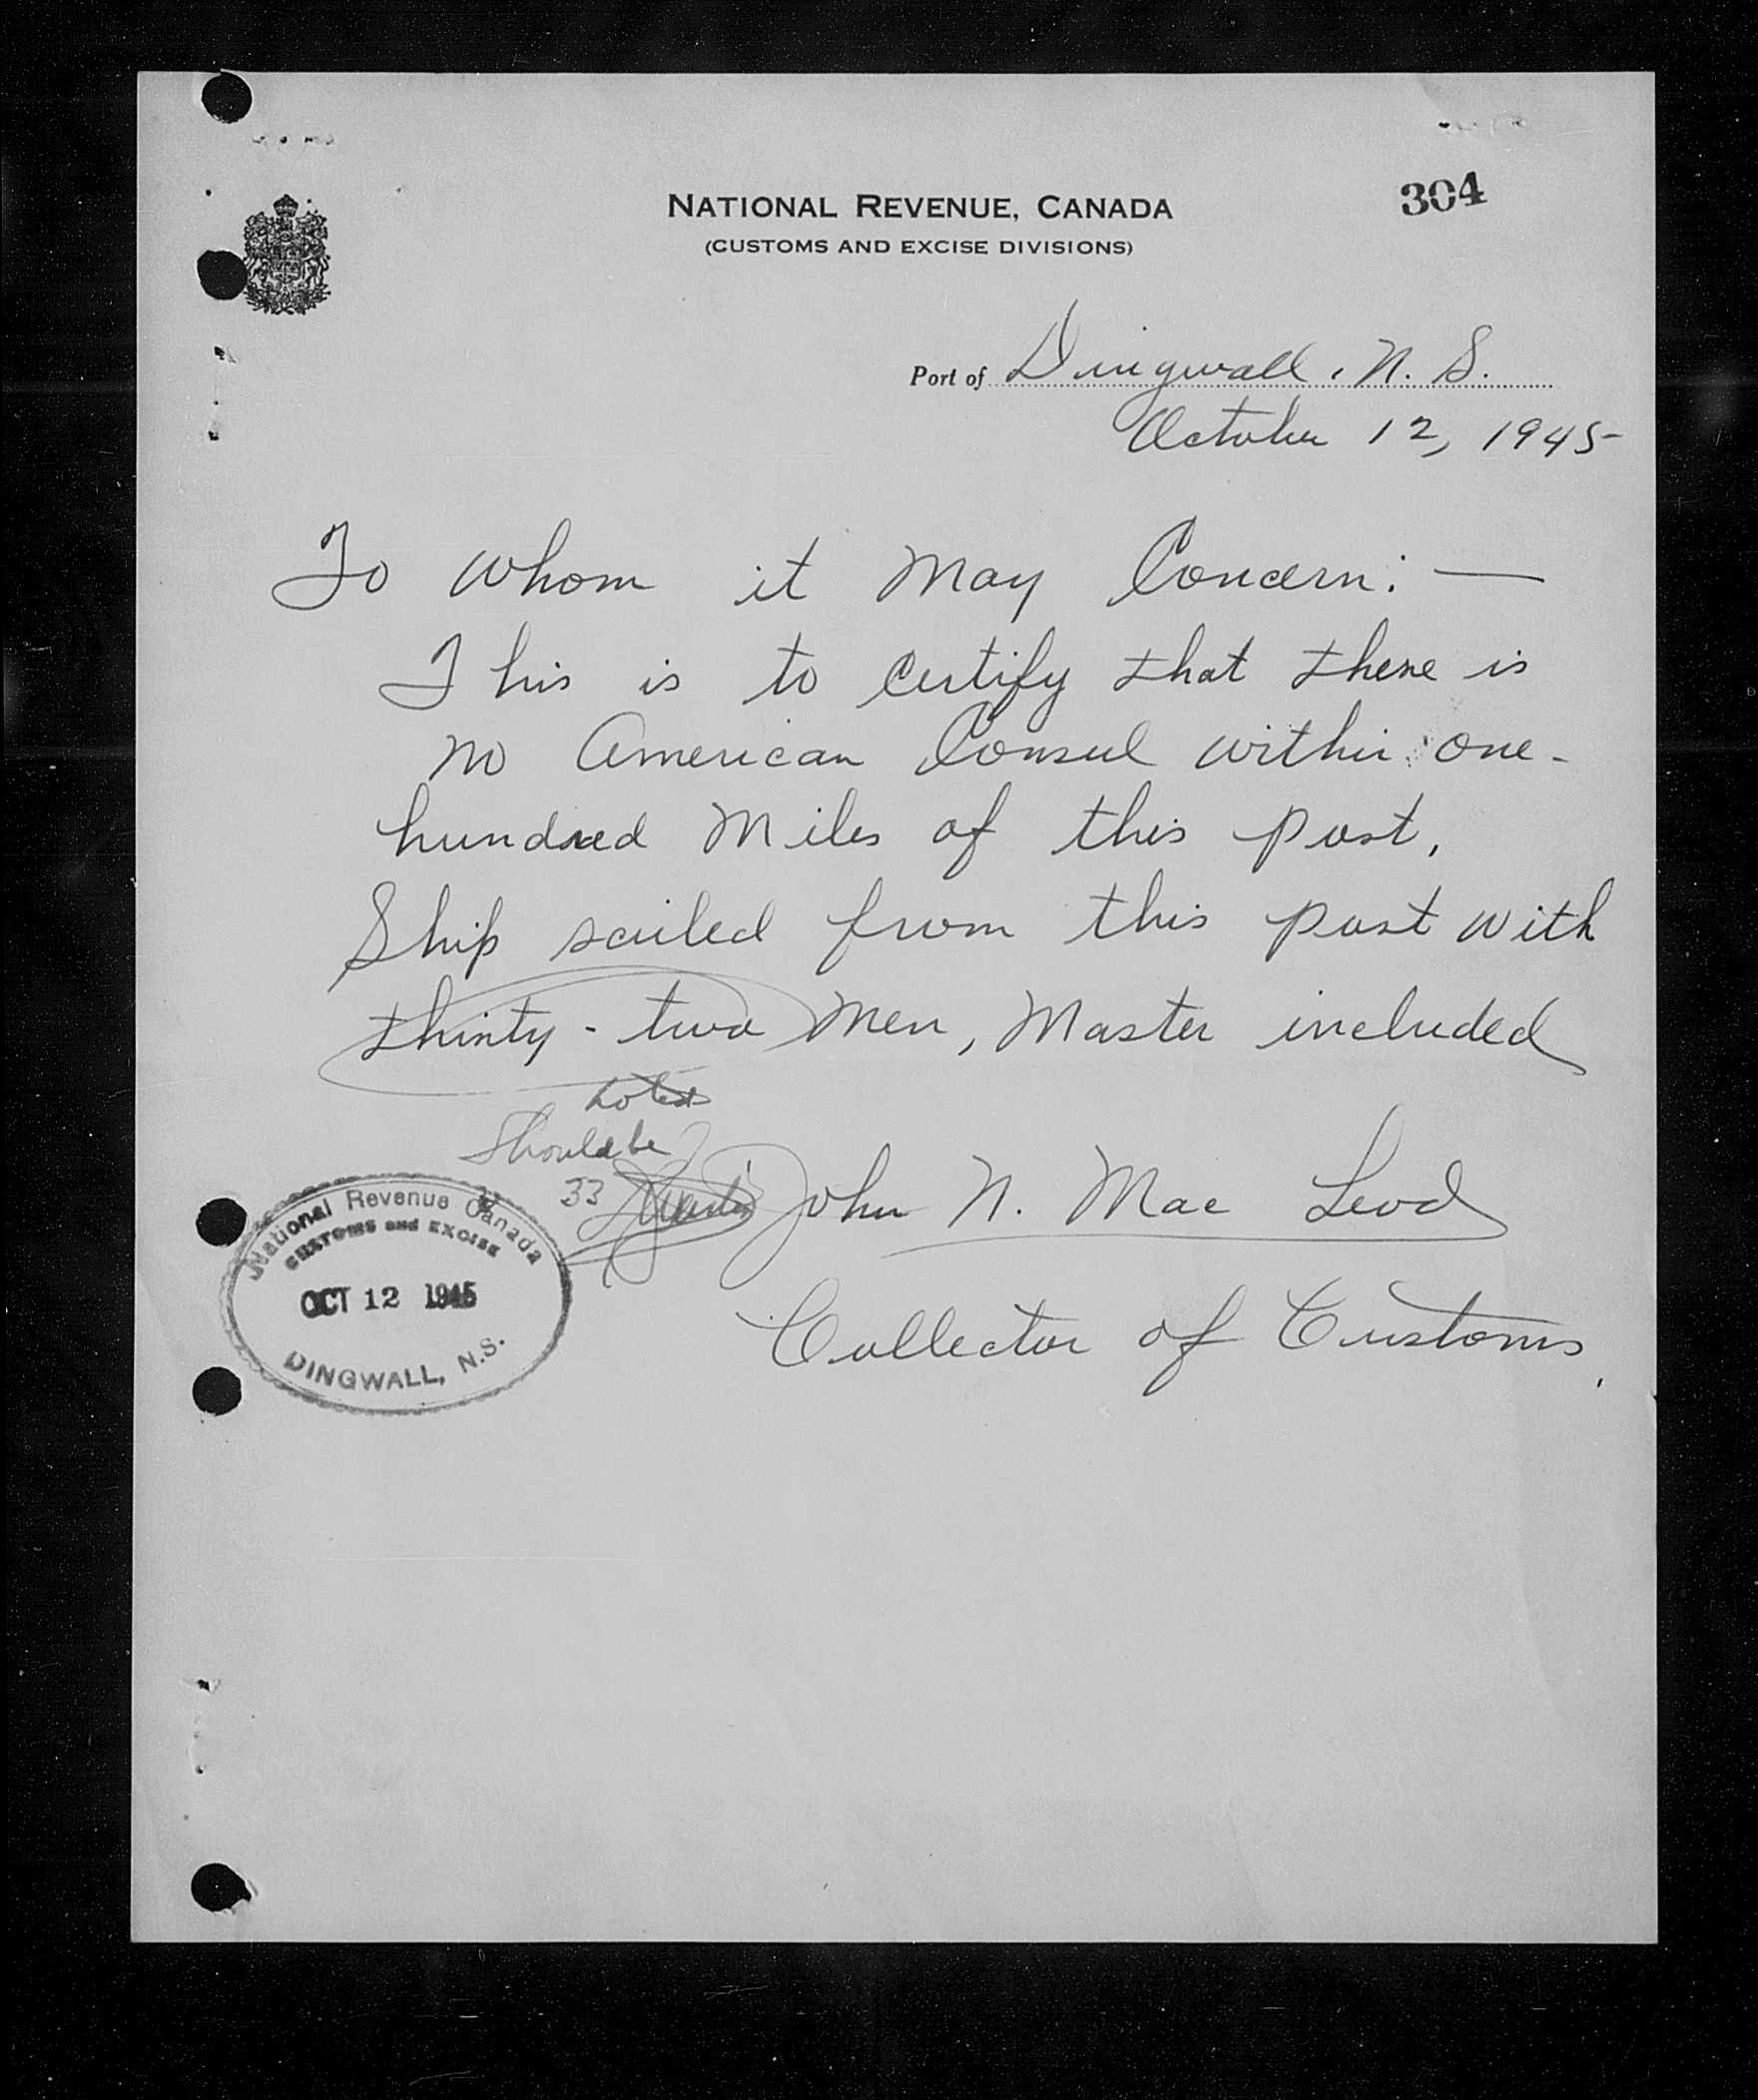 304
NATIONAL REVENUE, CANADA
(CUSTOMS AND EXCISE DIVISIONS)
Port of Dingwall, N. S.
October 12, 1945
To Whom it May Concern: —
This is to Certify that there is
no American Consul within one-
hundred Miles of this port,
Ship sailed from this port with
thirty-two Men, Master included
Should be
33
John N. Mac Leod
Collector of Customs.
National Revenue Canada
CUSTOMS and EXCISE
OCT 12 1945
DINGWALL, N.S.